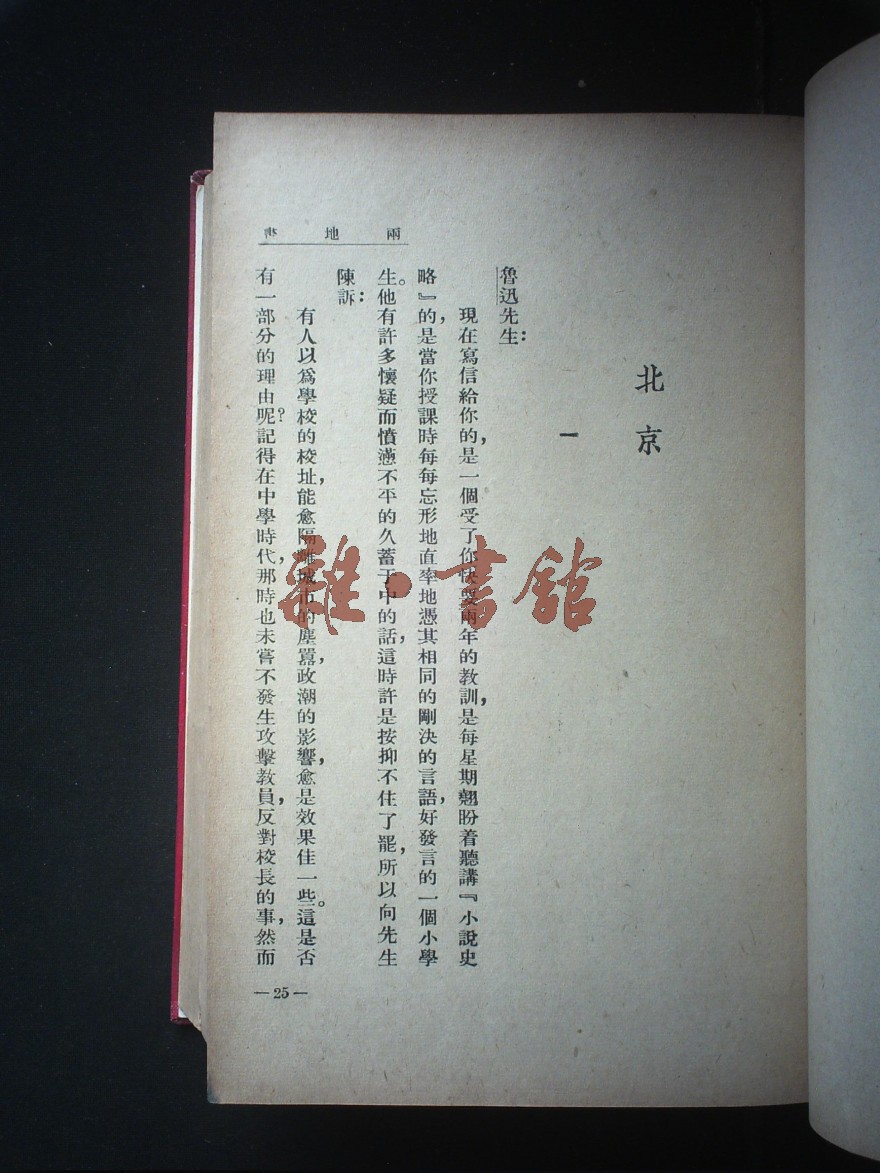 兩地書
北京
一
魯迅先生：
現在寫信給你的，是一個受了你快要兩年的教訓，是每星期翹盼着聽講『小說史
略』的，是當你授課時每每忘形地直率地憑其相同的剛決的言語，好發言的一個小學
生。他有許多懷疑而憤懣不平的久蓄于中的話，這時許是按抑不住了罷，所以向先生
陳訴：
有人以爲學校的校址，能愈隔離城市的塵囂，政潮的影響，愈是效果佳一些。這是否
有一部分的理由呢？記得在中學時代，那時也未嘗不發生攻擊教員，反對校長的事，然而
—25—
雜·書館